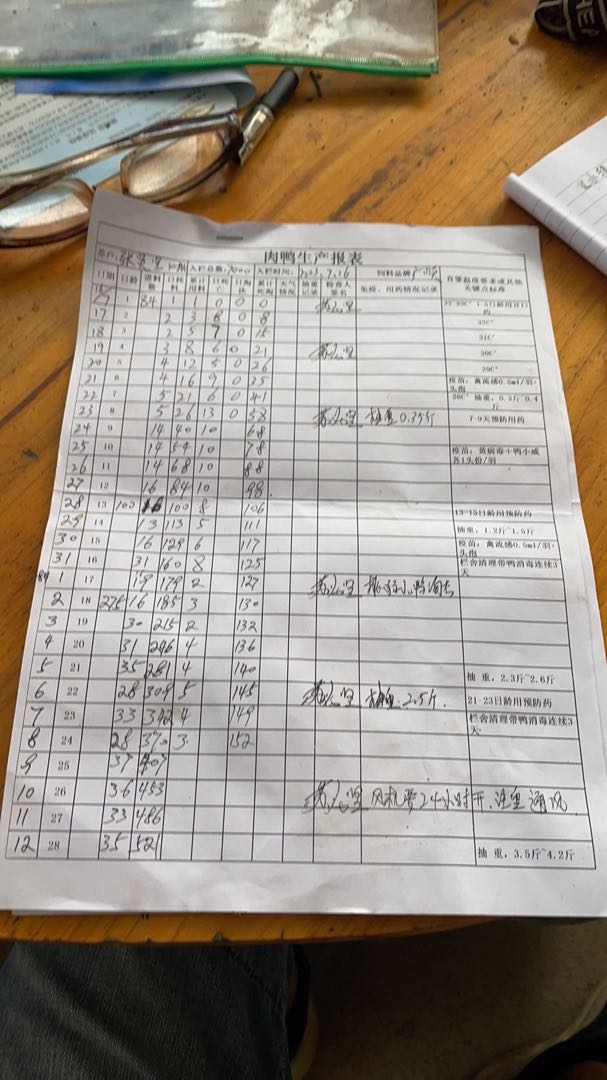 肉鸭生产报表
养户: 入栏总数:7000 入栏时间:2023.7.16 饲料品牌
日期 日龄 进料数 日耗料 累计用料 日死亡 日淘汰 累计死淘 天气情况 抽重记录 检查人签名 免疫、用药情况记录 育雏温度要求或其他关键点标准
1 84 1 0 0 0 1-5日龄用开口药
17 2 2 3 8 0 8 32C°
18 3 2 5 7 0 15 31C°
19 4 3 8 6 0 21 30C°
20 5 4 12 5 0 26 29C°
21 6 4 16 9 0 35 疫苗:禽流感0.5ml/羽·头孢
22 7 5 21 6 0 41 26C° 抽重,0.3斤~0.4斤
23 8 5 26 13 0 58 抽重0.35斤 7-9天预防用药
24 9 14 40 10 68
25 10 14 54 10 78 疫苗:黄病毒+鸭小威各1头份/羽
26 11 14 68 10 88
27 12 16 84 10 98
28 13 100 16 100 8 106 13-15日龄用预防药
29 14 13 113 5 111 抽重,1.2斤~1.5斤
30 15 16 129 6 117 疫苗:禽流感0.5ml/羽·头孢
31 16 31 160 8 125 栏舍清理带鸭消毒连续3天
1 17 19 179 2 127
2 18 275 16 185 3 130
3 19 30 215 2 132
4 20 31 246 4 136
5 21 35 281 4 140 抽重,2.3斤~2.6斤
6 22 28 309 5 145 抽重2.5斤. 21-23日龄用预防药
7 23 33 342 4 149 栏舍清理带鸭消毒连续3天
8 24 28 370 3 152
9 25 37 407
10 26 36 453 风机要24小时开,注重通风
11 27 33 486
12 28 35 521 抽重,3.5斤~4.2斤